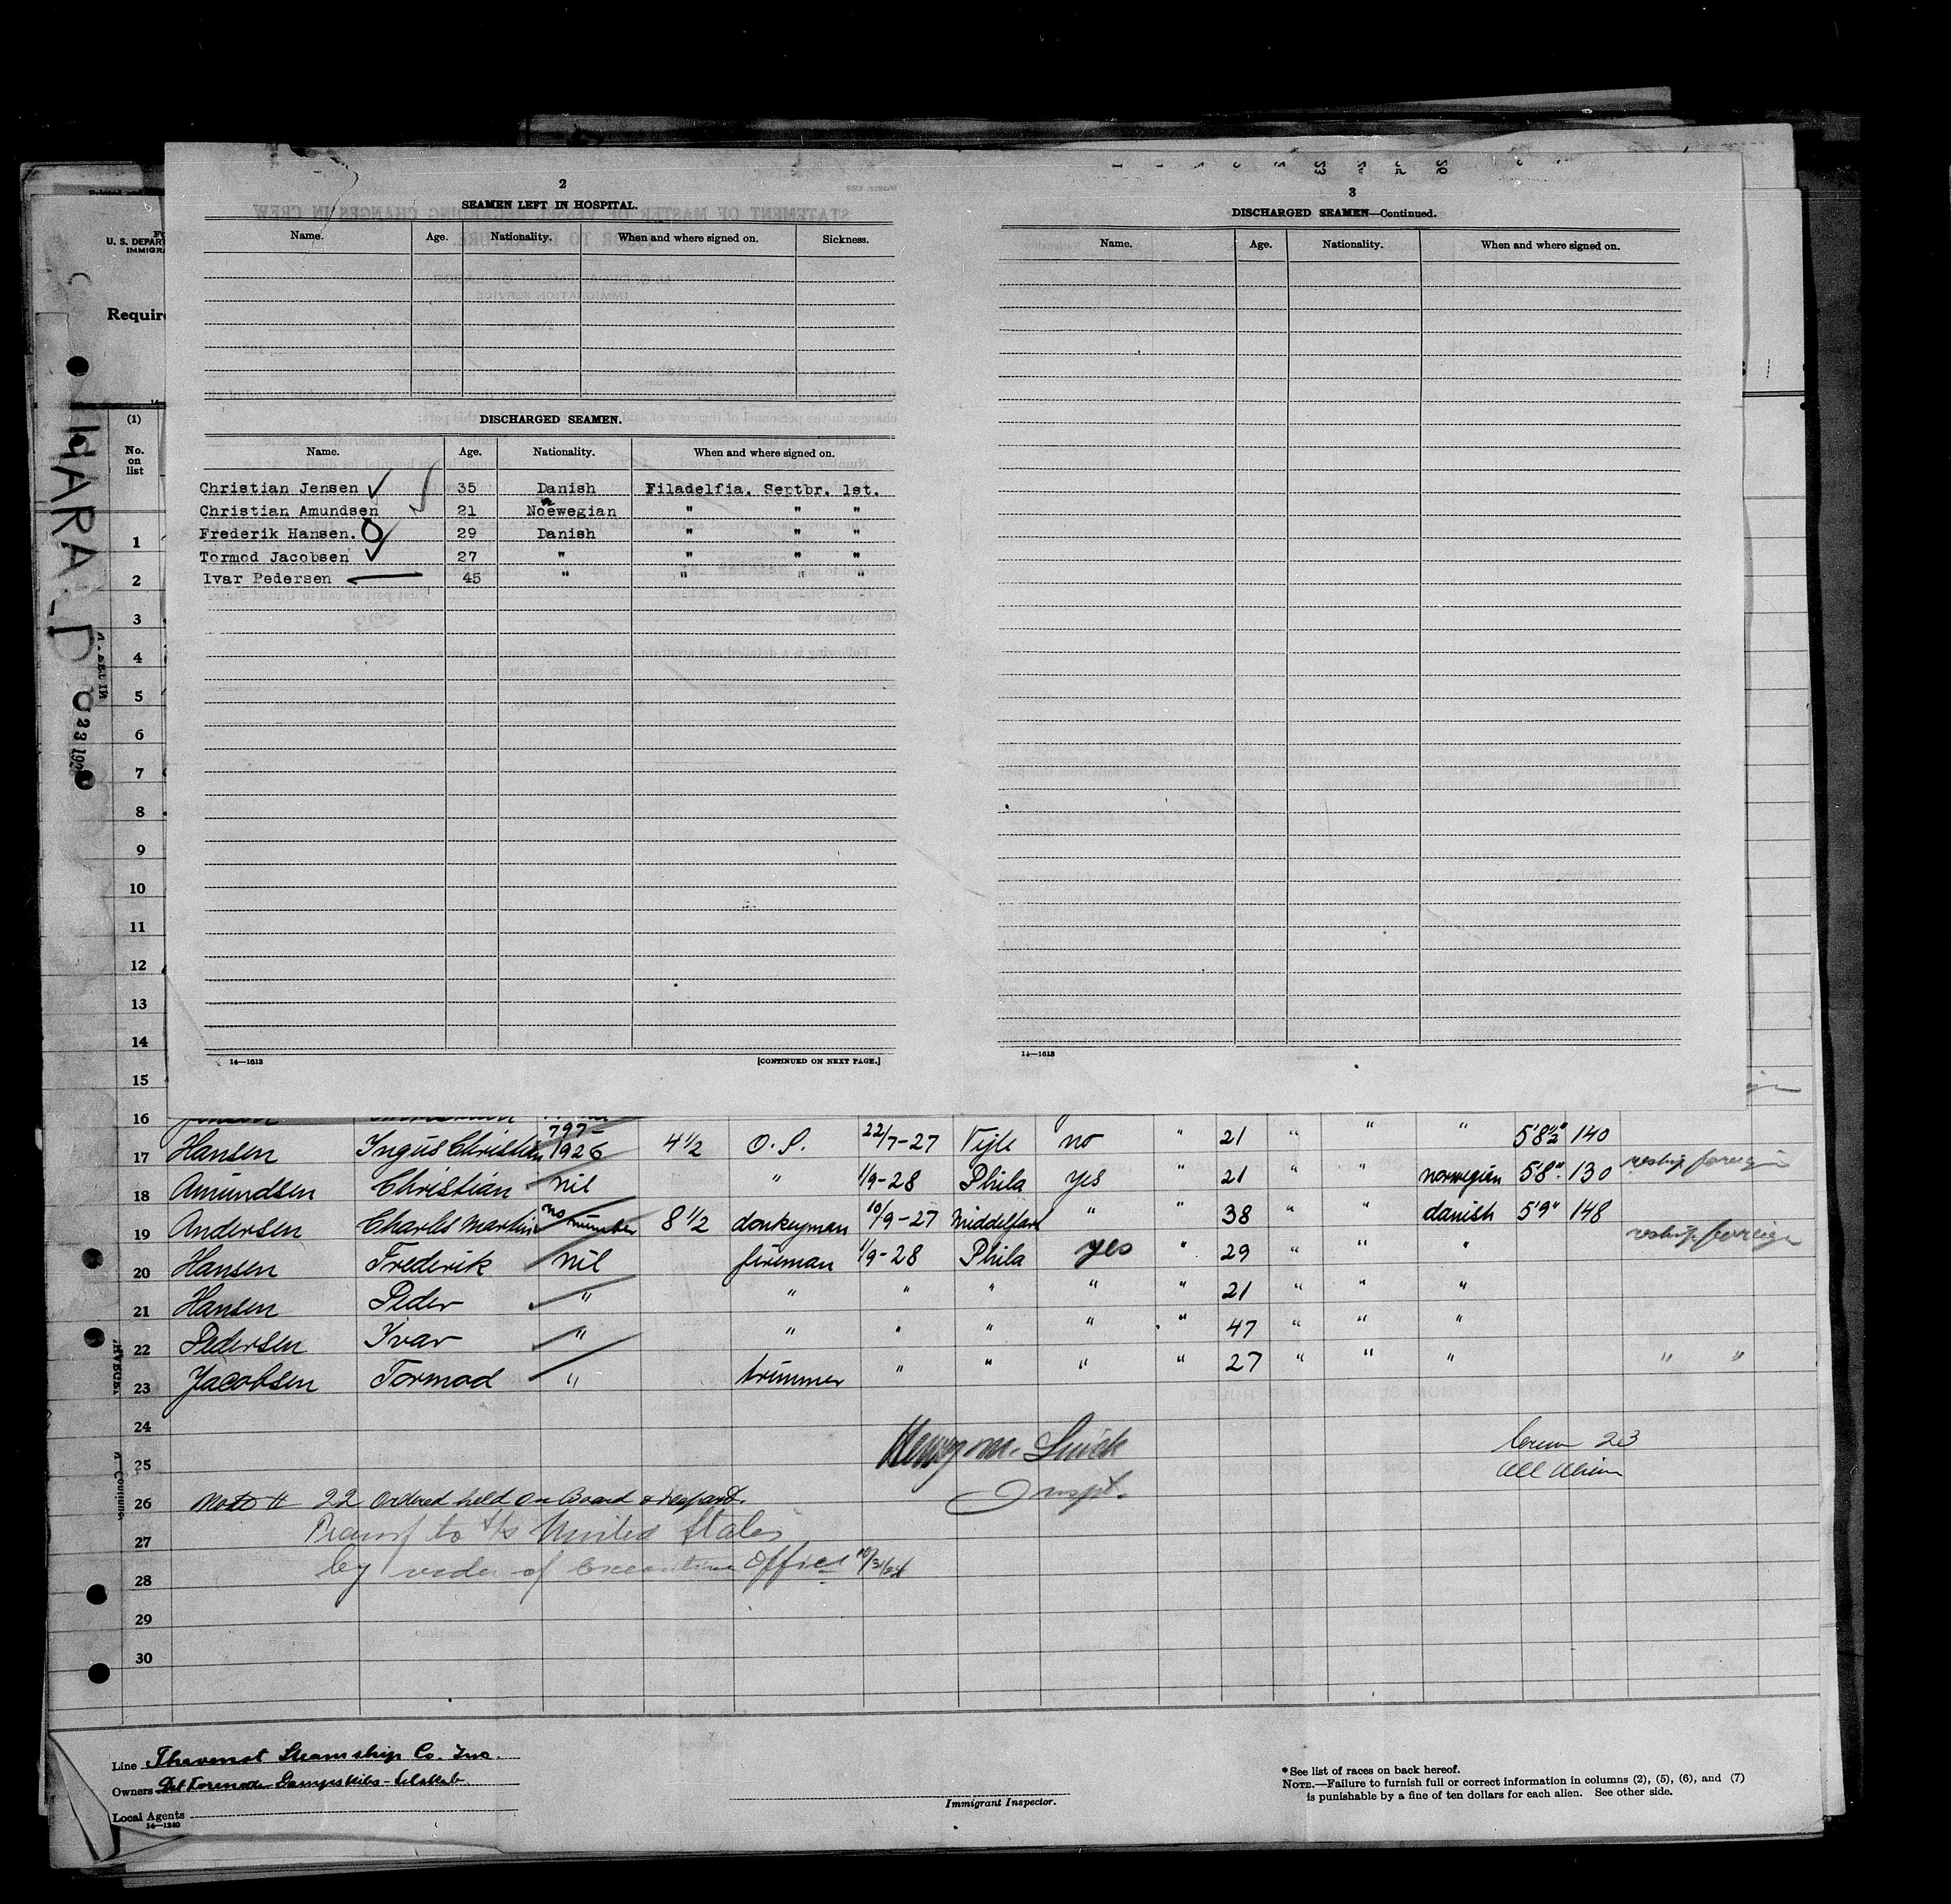 2
SEAMEN LEFT IN HOSPITAL.
Name. Age. Nationality. When and where signed on. Sickness.
DISCHARGED SEAMEN.
Name. Age. Nationality. When and where signed on.
Christian Jensen 35 Danish Filadelfia. Septbr. 1st.
Christian Amundsen 21 Noewegian " " "
Frederik Hansen. 29 Danish " " "
Tormod Jacobsen 27 " " " "
Ivar Pedersen 45 " " " "
14—1613 [CONTINUED ON NEXT PAGE.]
3
DISCHARGED SEAMEN—Continued.
Name. Age. Nationality. When and where signed on.
14—1613
U. S. DEPAR
IMMIGRA
Require
(1)
No.
on
list
HARALD
1
2
3
4
5
6
7
8
9
10
11
12
13
14
15
16
17 Hansen Ingus Christian 797- 1926 4 1/2 O. S. 22/7-27 Vejle no " 21 " " " 5'8 1/2" 140
18 Amundsen Christian nil " 1/9-28 Phila yes " 21 " " norwegian 5'8" 130 reship foreign
19 Andersen Charles Martin no number 8 1/2 donkeyman 10/9-27 Middelfart " " 38 " " danish 5'9" 148
20 Hansen Frederik nil fireman 1/9-28 Phila yes " 29 " " " reship foreign
21 Hansen Peder " " " " " " 21 " " "
22 Pedersen Ivar " " " " " " 47 " " "
23 Jacobsen Tormod " trimmer " " " " 27 " " " " "
24
25
26
27
28
29
30
Henry M. Smick
Inspt.
Crew 23
All Alien
Note # 22 Ordered held on Board & deport.
Transf to s/s United States
by order of Executive Office
Line Thavenot Steamship Co. Inc.
Owners Det Forenede Dampskibs-Selskab
Local Agents
14—1240
Immigrant Inspector.
*See list of races on back hereof.
NOTE.—Failure to furnish full or correct information in columns (2), (5), (6), and (7)
is punishable by a fine of ten dollars for each alien. See other side.